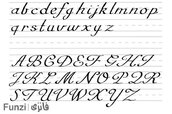 abcdefghijklmnop
qrstuvwxyz
ABCDEFGHI
JKLMNOPQR
STUVWXYZ
Funzi فانزی